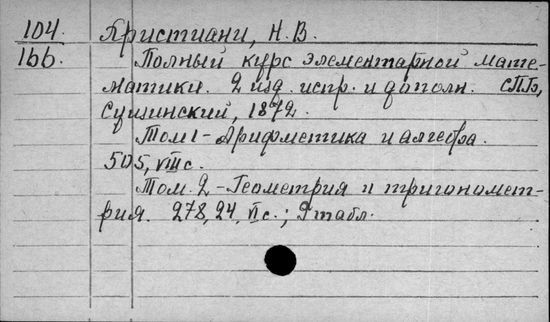 104.
166.
Кристиани, Н. В.
Полный курс элементарной мате-
матики. 2 изд. испр. и дополн. СПБ,
Сущинский, 1872.
Том 1 - Арифметика и алгебра.
505, VIII с.
Том. 2 - Геометрия и тригономет-
рия. 278, 24, VI с.; 9 табл.